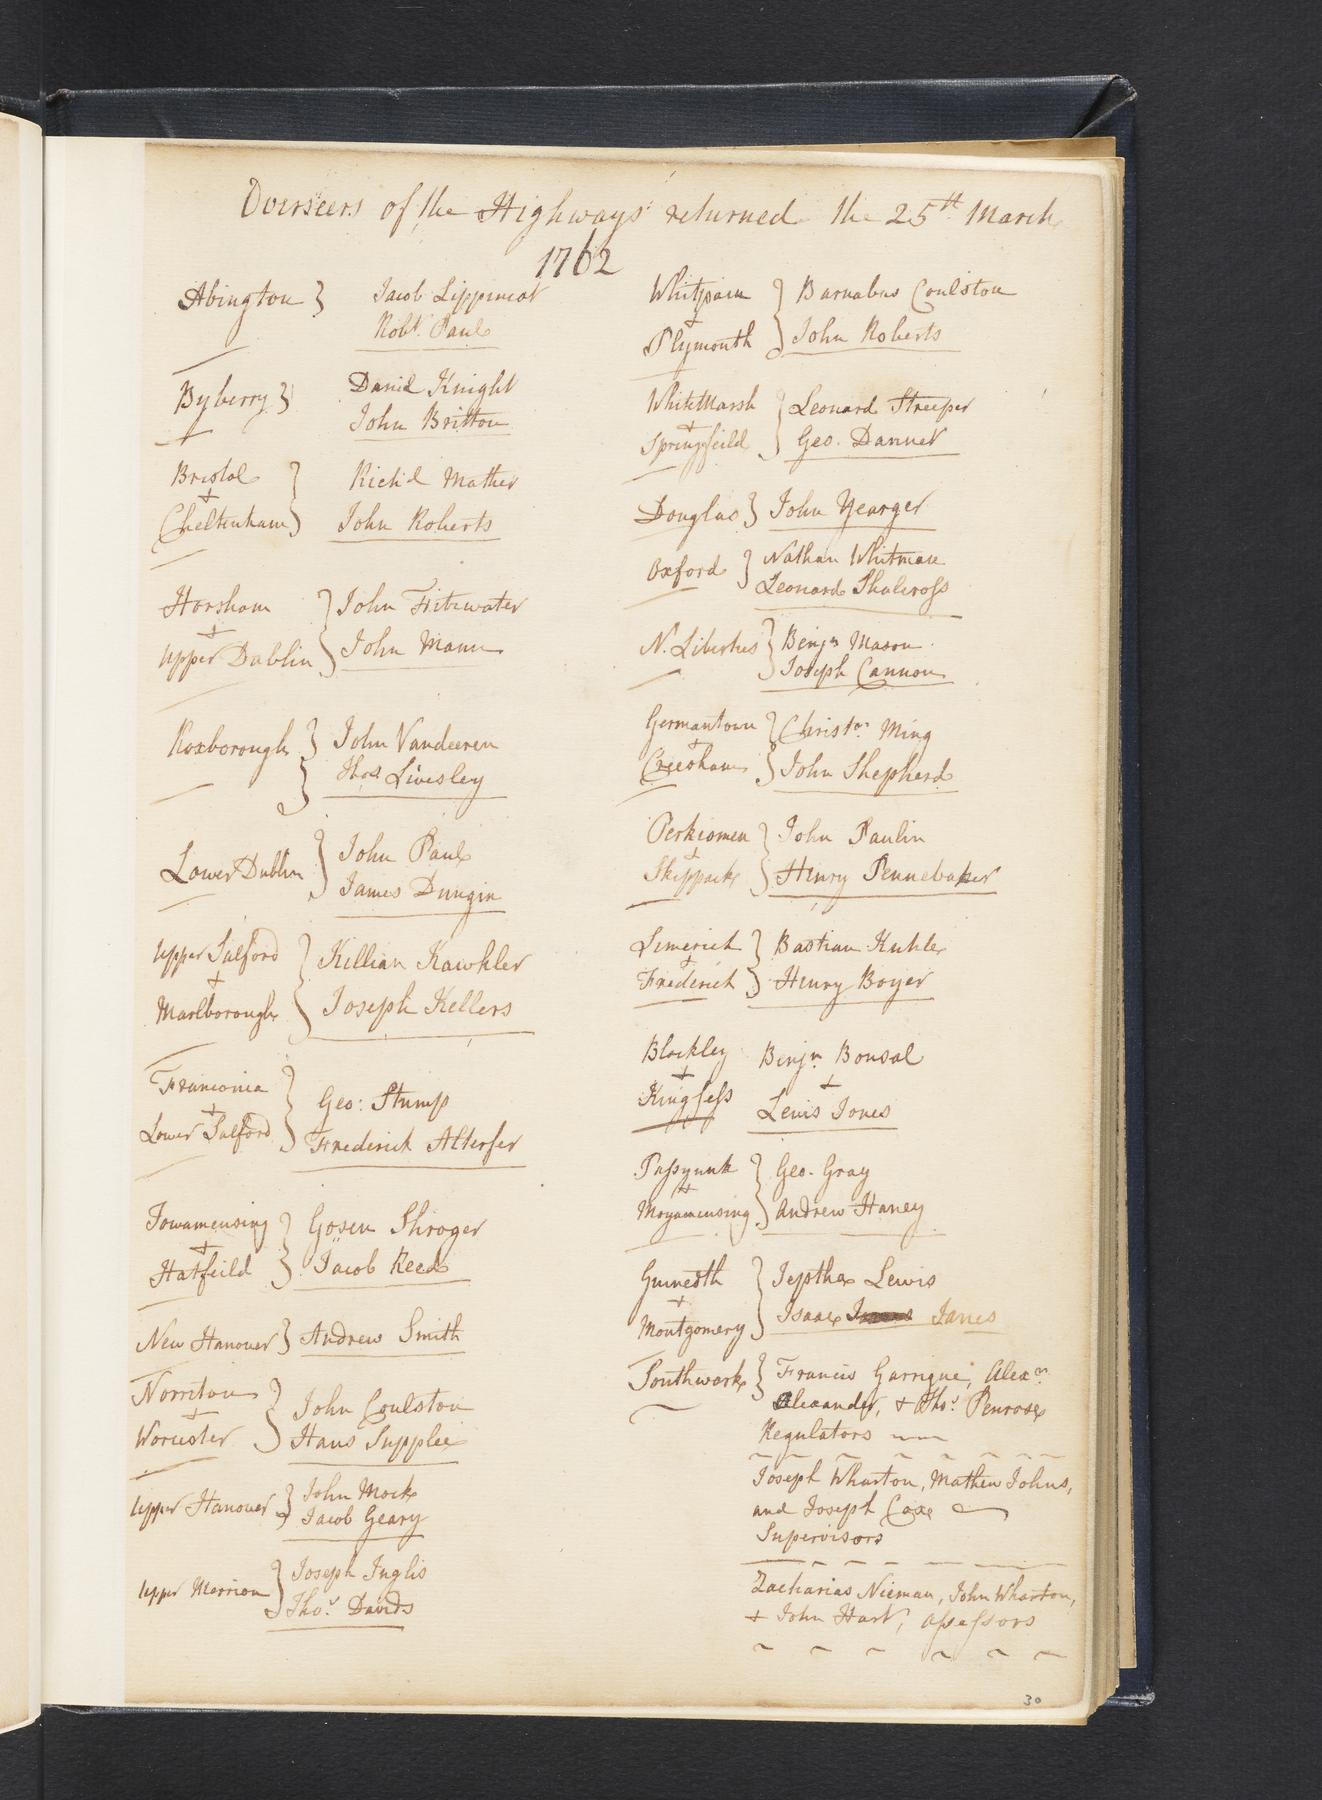 Overseers of the Highways returned the 25th March
1762
Abington } Jacob Lippincot
Robt. Paul
Byberry } Daniel Knight
John Britton
Bristol
+
Cheltenham } Rich'd Mather
John Roberts
Horsham
+
Upper Dublin } John Fitzwater
John Mann
Roxborough } John Vandeeren
Thos Livesley
Lower Dublin } John Paul
James Dungin
Upper Salford
+
Marlborough } Killian Kawkler
Joseph Kellers
Franconia
+
Lower Salford } Geo: Stump
Frederick Alterfer
Towamensing
+
Hatfeild } Gosen Shroger
Jacob Reed
New Hanover } Andrew Smith
Norriton
+
Worcester } John Coulston
Hans Supplee
Upper Hanover } John Mock
Jacob Geary
Upper Merrion } Joseph Inglis
Tho.s Davids
Whitpain
+
Plymouth } Barnabas Coulston
John Roberts
WhiteMarsh
+
Springfeild } Leonard Streeper
Geo. Dannet
Douglas } John Yearger
Oxford } Nathan Whitman
Leonard Shalcross
N. Liberties } Benjn Mason
Joseph Cannon
Germantown
+
Creesham } Christr. Ming
John Shepherd
Perkiomen
+
Skippack } John Paulin
Henry Pennebaker
Limerick
+
Frederick } Bastian Kuhle
Henry Boyer
Blockley
+
Kingsess Benjn. Bonsal
+
Lewis Jones
Passyunk
+
Moyamensing } Geo. Gray
Andrew Haney
Guinedth
+
Montgomery } Jepthex Lewis
Isaac Janes
Southwark } Francis Garrigue, Alexr.
Alexander, + Tho.s Penrose
Regulators
Joseph Wharton, Mathew Johns,
and Joseph Cox
Supervisors
Zacharias Nieman, John Wharton,
+ John Hart, assessors
30